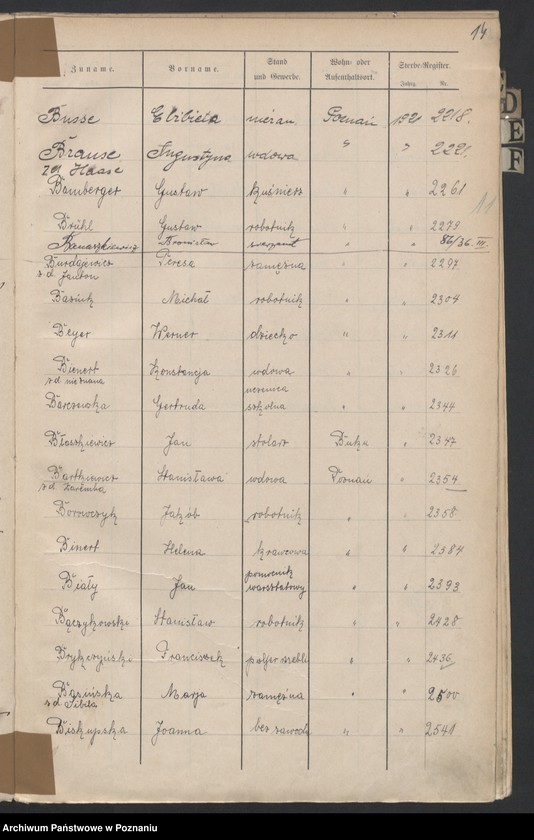 14
Zuname. Vorname. Stand und Gewerbe. Wohn- oder Aufenthaltsort. Sterbe-Register.
Jahrg. Nr.
Busse Elżbieta niezam. Poznań 1921 2218.
Krause Augustyna wdowa " " 2221.
zd Haase
Bamberger Gustaw kuśnierz " " 2261
11
Brühl Gustaw robotnik " " 2279
Banaszkiewicz Bronisław " " 86/36. III.
Burdajewicz Teresa zamężna " " 2297
z d. Janton
Basiuk Michał robotnik " " 2304
Beyer Werner dziecko " " 2311
Bienert Konstancja wdowa " " 2326
z d nieznana
Barczewska Gertruda uczennica szkolna " " 2344
Błaszkiewicz Jan stolarz Buku " 2347
Bartkiewicz Stanisława wdowa Poznań " 2354
z d. Zaremba
Borowczyk Jakób robotnik " " 2358
Binert Helena krawcowa " " 2384
Biały Jan pomocnik warsztatowy " " 2393
Bączykowski Stanisław robotnik " " 2428
Brykczyński Franciszek " " 2436.
Bazińska Marja zamężna " " 2500
z d. Sibila
Biskupska Joanna bez zawodu " " 2541
D
E
F
Archiwum Państwowe w Poznaniu